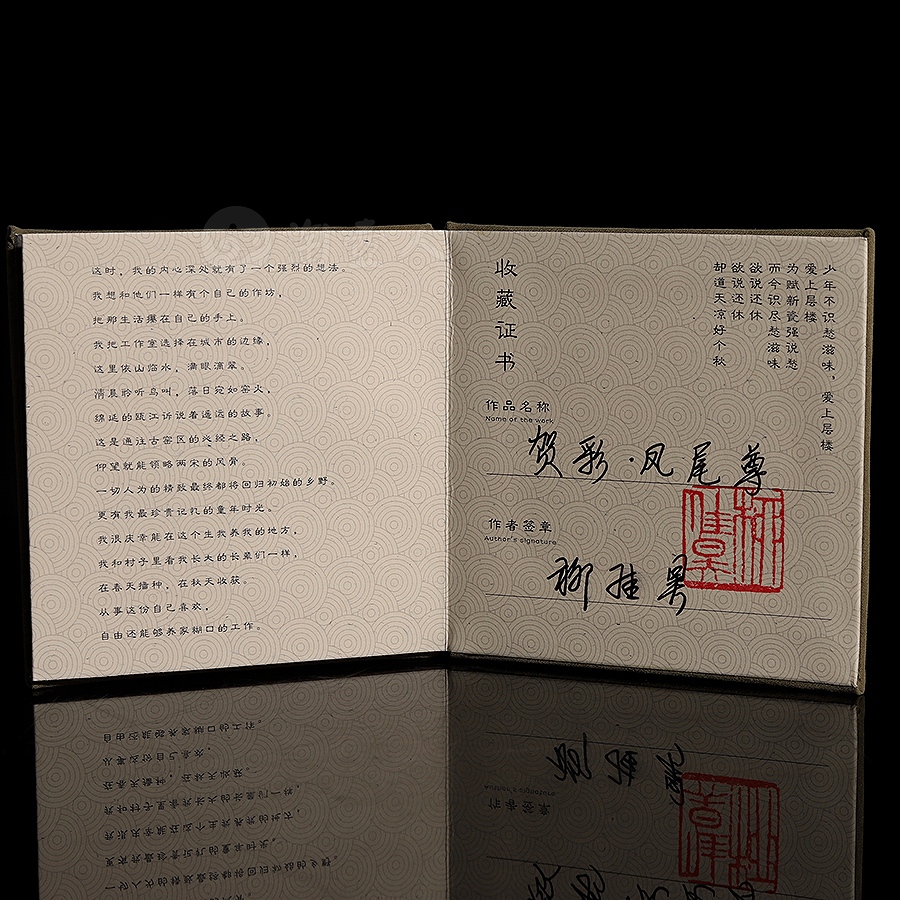 这时,我的内心深处就有了一个强烈的想法。
我想和他们一样有个自己的作坊,
把那生活在自己的手上。
我把工作室选择在城市的边缘,
这里依山临水,满眼滴翠。
清晨聆听鸟叫,落日宛如窑火,
绵延的瓯江诉说着遥远的故事。
这是通往古窑区的必经之路,
仰望就能领略两宋的风骨。
一切人为的精致最终都将回归初始的乡野。
更有我最珍贵记忆的童年时光。
我很庆幸能在这个生我养我的地方,
我和村子里看我长大的长辈们一样,
在春天播种,在秋天收获。
从事这份自己喜欢,
自由还能够养家糊口的工作。
少年不识愁滋味,爱上层楼
爱上层楼
为赋新瓷强说愁
而今识尽愁滋味
欲说还休
欲说还休
却道天凉好个秋
收藏证书
作品名称
Name of the work
贺彩·凤尾尊
作者签章
Author's signature
柳